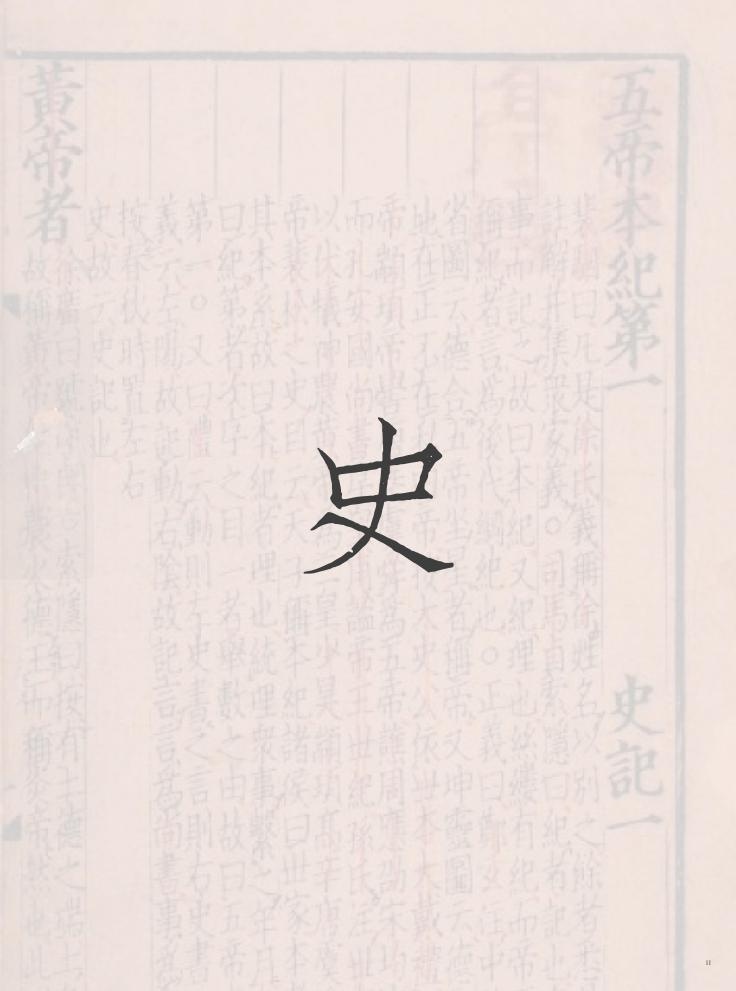 五帝本紀第一　史記一
裴駰曰凡是徐氏義稱徐姓名以別之餘者悉
註解并集衆家義○司馬貞索隱曰紀者記也
事而記之故曰本紀又紀理也絲縷有紀而帝
稱紀者言爲後代綱紀也○正義曰鄭玄注中
省圖云德合五帝坐星者稱帝又坤靈圖云德
此在正不在 太史公依世本大戴禮
帝顓頊帝嚳 舜爲五帝譙周應劭宋均
而孔安國尚書 謐帝王世紀孫氏注世
以伏犧神農 皇少昊顓頊高辛唐虞
帝裴松之史目云天子稱本紀諸侯曰世家本
其本系故曰本紀者理也統理衆事繫之年月
曰紀第者次序之目一者舉數之由故曰五帝
第一○又曰禮云動則左史書之言則右史書
義云左陽故記動右陰故記言言爲尚書事爲
按春秋時置左右
史故云史記也
黃帝者
徐廣曰號 索隱曰按有土德之瑞土
故稱黃帝 神農火德王而稱炎帝然也此
史
II